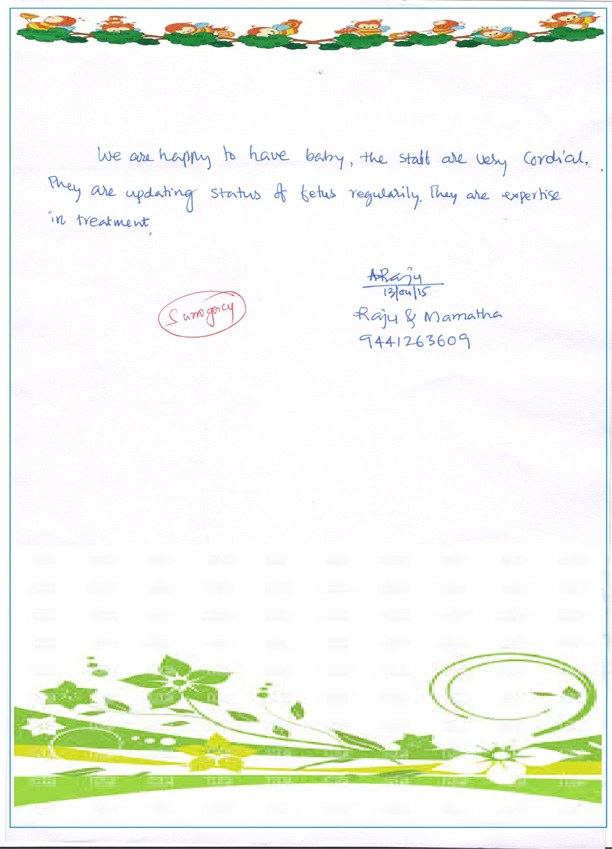 We are happy to have baby, the staff are very Cordial.
They are updating status of fetus regularily. They are expertise
in treatment.
ARaju
13/04/15
Surrogacy
Raju & Mamatha
9441263609